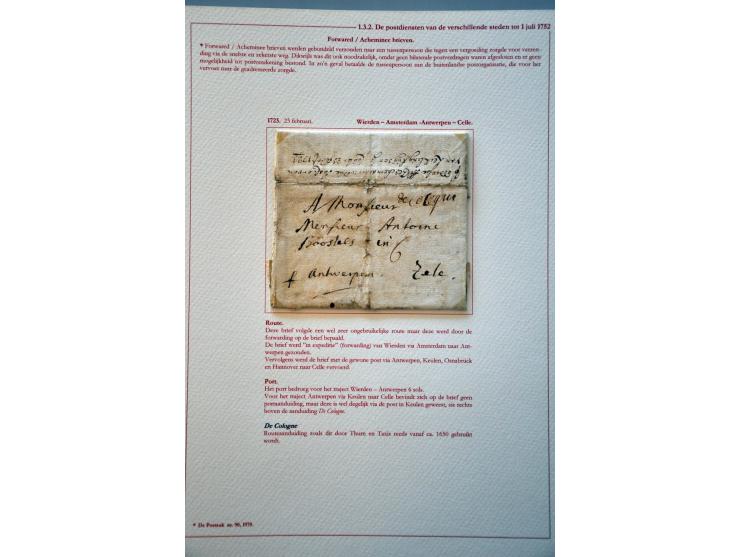 1.3.2. De postdiensten van de verschillende steden tot 1 juli 1752
Forwared / Acheminee brieven.
* Forwared / Acheminee brieven werden gebundeld verzonden naar een tussenpersoon die tegen een vergoeding zorgde voor verzen-
ding via de snelste en zekerste weg. Dikwijls was dit ook noodzakelijk, omdat geen bilaterale postverdragen waren afgesloten en er geen
mogelijkheid tot postuitrekening bestond. In zo'n geval betaalde de tussenpersoon aan de buitenlandse postorganisatie, die voor het
vervoer naar de geadresseerde zorgde.
1725. 23 februari. Wierden – Amsterdam -Antwerpen – Celle.
A Monsieur de Cologne
Mensieur Antoine
in 6
Antwerpen. Zele.
Route.
Deze brief volgde een wel zeer ongebruikelijke route maar deze werd door de
forwarding op de brief bepaald.
De brief werd "in expeditie" (forwarding) van Wierden via Amsterdam naar Ant-
werpen gezonden.
Vervolgens werd de brief met de gewone post via Antwerpen, Keulen, Osnabrück
en Hannover naar Celle vervoerd.
Port.
Het port bedroeg voor het traject Wierden – Antwerpen 6 sols.
Voor het traject Antwerpen via Keulen naar Celle bevindt zich op de brief geen
portaanduiding, maar deze is wel degelijk via de post in Keulen geweest, zie rechts
boven de aanduiding De Cologne.
De Cologne
Routeaanduiding zoals dit door Thurn en Taxis reeds vanaf ca. 1650 gebruikt
wordt.
* De Postzak nr. 90, 1970.